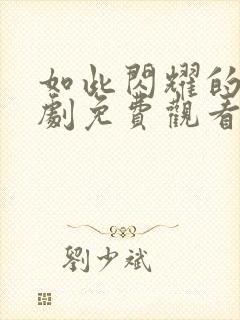 如此閃耀的
劇免費觀看
劉少斌